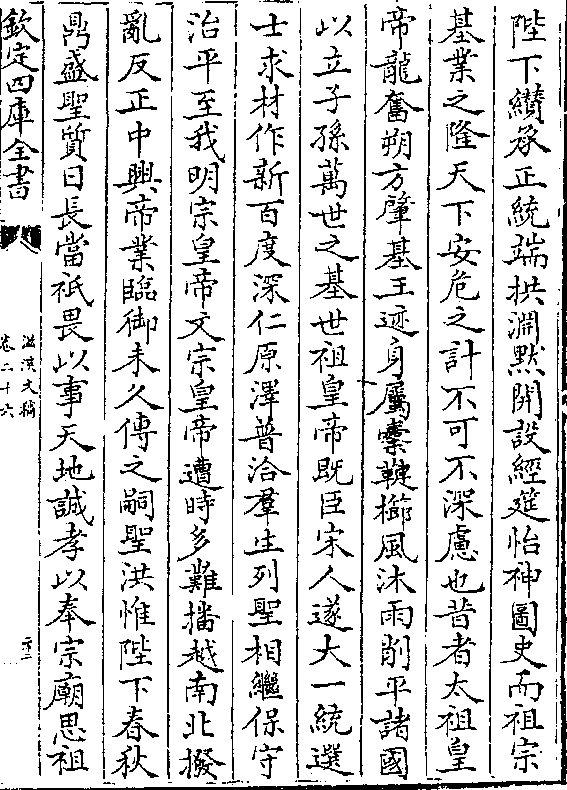 陛下纉承正統端拱淵默開設經筵怡神圖史而祖宗
基業之隆天下安危之計不可不深慮也昔者太祖皇
帝龍奮朔方肇基王迹身屬櫜鞬櫛風沐雨削平諸國
以立子孫萬世之基世祖皇帝既臣宋人遂大一統選
士求材作新百度深仁厚澤普洽羣生列聖相繼保守
治平至我明宗皇帝文宗皇帝遭時多難播越南北撥
亂反正中興帝業臨御未久傳之嗣聖洪惟陛下春秋
鼎盛聖質日長當祇畏以事天地誠孝以奉宗廟思祖
欽定四庫全書
滋溪文稿
卷二十六